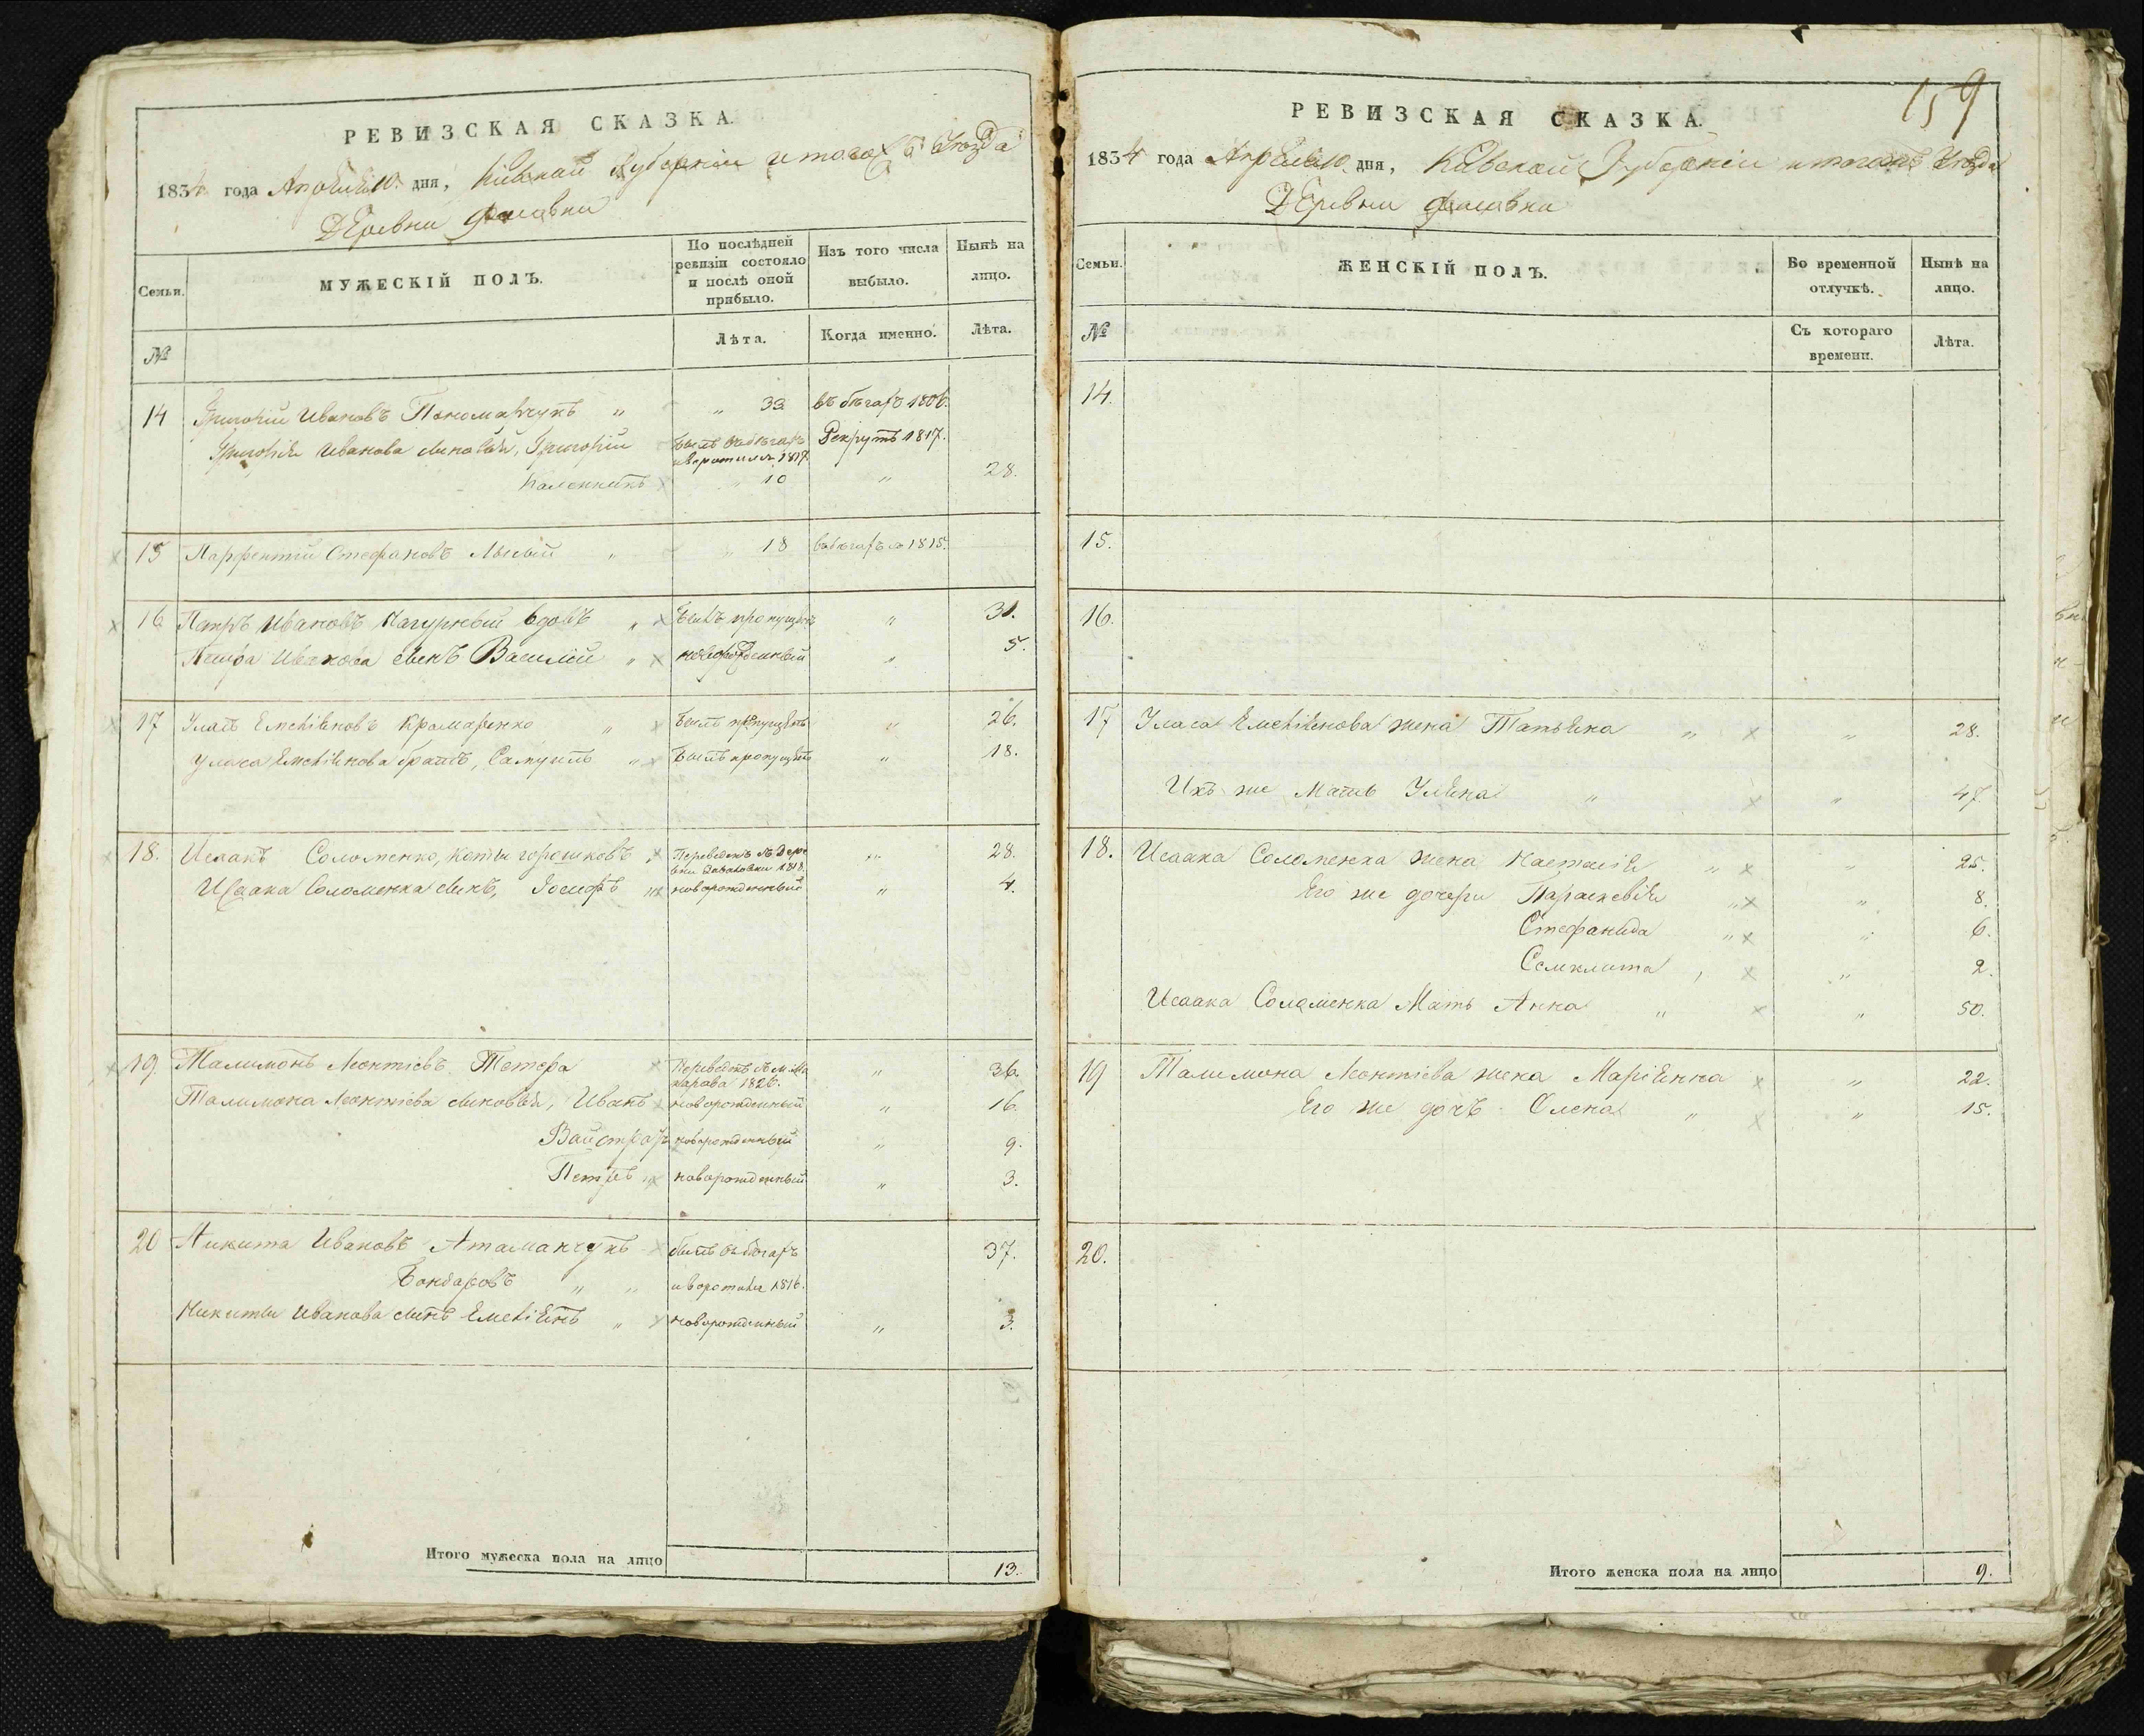 РЕВИЗСКАЯ СКАЗКА.
1834 года Апреля 10 дня, Кіевской Губерніи и того Уезда
Деревни
Семьи.
МУЖЕСКІЙ ПОЛЪ.
По послѣдней ревизіи состояло и послѣ оной прибыло.
Изъ того числа выбыло.
Нынѣ на лицо.
№
Лѣта.
Когда именно.
Лѣта.
14 Григорій Ивановъ Пономарчукъ " " 33 въ бѣгахъ 1806.
Григорія Иванова сыновья, Григорій былъ въ бѣгахъ и воротился 1817 Рекрутъ 1817.
" 10 " 28.
15 Парфентій Стефановъ Лысый " " 18 въ бѣгахъ 1815.
16 Ивановъ вдовъ " былъ пропущенъ " 31.
Иванова сынъ Василій " новорожденный " 5.
17 Уласъ Емеліяновъ Крамаренко " былъ пропущенъ " 26.
Уласа Емеліянова братъ, Самуилъ " былъ пропущенъ " 18.
18. Исаакъ Соломенко, " Переведенъ изъ Дере вни 1818. " 28.
Исаака Соломенка сынъ, Іосифъ " новорожденный " 4.
19 Талимонъ Леонтіевъ Тетера Переведенъ изъ м. Ма карова 1826. " 36.
Талимона Леонтіева сыновья, Иванъ новорожденный " 16.
новорожденный " 9.
Петръ " новорожденный " 3.
20 Никита Ивановъ Атаманчукъ былъ въ бѣгахъ 37.
Бондаровъ " " и воротился 1816.
Никиты Иванова сынъ Емеліянъ " новорожденный " 3.
Итого мужеска пола на лицо 13.
159
РЕВИЗСКАЯ СКАЗКА.
1834 года Апреля 10 дня, Кіевской Губерніи и того Уезда
Деревни
Семьи.
ЖЕНСКІЙ ПОЛЪ.
Во временной отлучкѣ.
Нынѣ на лицо.
№
Съ котораго времени.
Лѣта.
14.
15.
16.
17 Уласа Емеліянова жена Татьяна " " 28.
Ихъ же Мать Уляна " " 47.
18. Исаака Соломенка жена Настасія " " 25.
Его же дочери Параскевія " " 8.
Стефанида " " 6.
" 2.
Исаака Соломенка Мать Анна " " 50.
19 Талимона Леонтіева жена Маріянна " 22.
Его же дочь Олена " " 15.
20.
Итого женска пола на лицо 9.